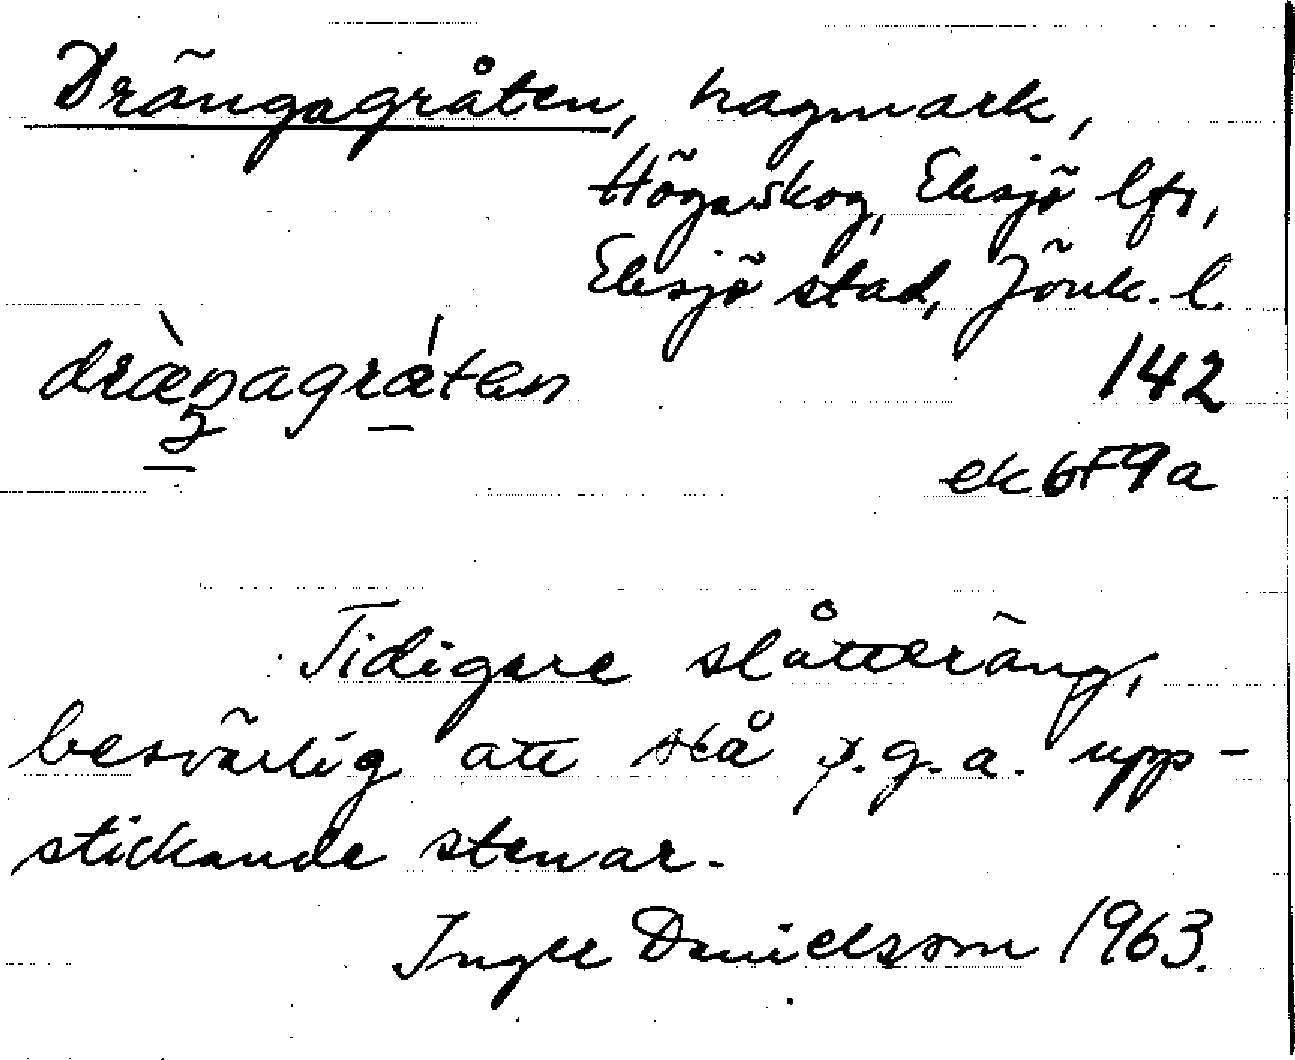 Drängagråten, hagmark,
Högaskog, Eksjö lfs,
Eksjö stad, Jönk. l.
dræ̀ŋagrátən 142
ek 6F9a
Tidigare slåtteräng,
besvärlig att slå p.g.a. upp-
stickande stenar.
Inger Danielsson 1963.